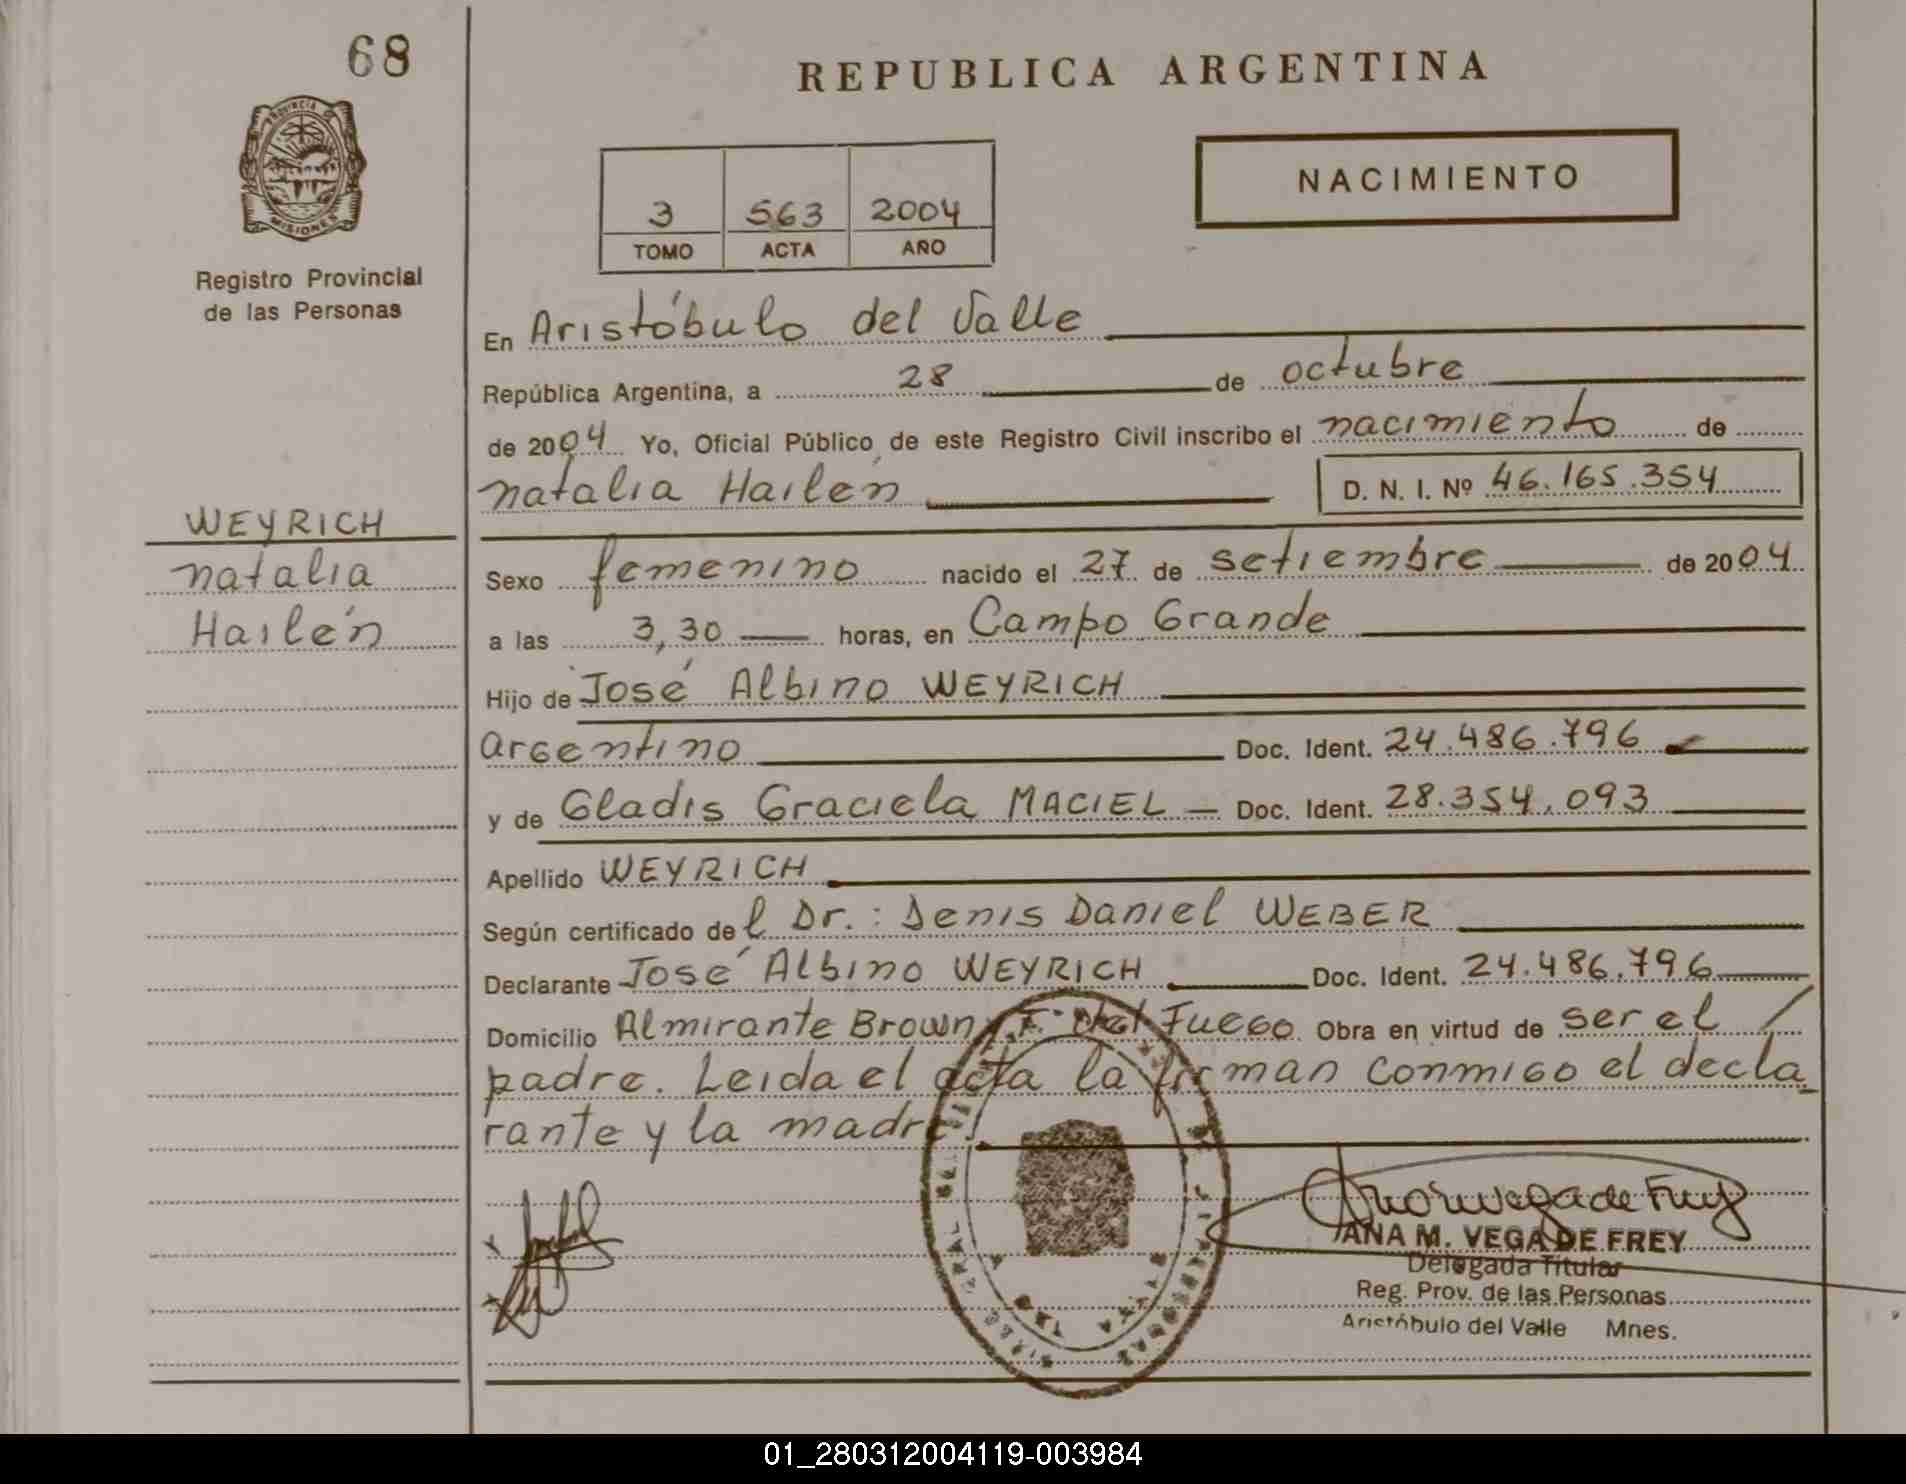 68
REPUBLICA ARGENTINA
PROVINCIA DE
MISIONES
Registro Provincial
de las Personas
NACIMIENTO
3 563 2004
TOMO ACTA AÑO
En Aristóbulo del Valle
República Argentina, a 28 de octubre
de 2004 Yo, Oficial Público de este Registro Civil inscribo el nacimiento de
natalia Hailén D. N. I. Nº 46.165.354
WEYRICH
natalia
Hailén
Sexo femenino nacido el 27 de setiembre de 2004
a las 3,30 horas, en Campo Grande
Hijo de José Albino WEYRICH
argentino Doc. Ident. 24.486.796
y de Gladis Graciela MACIEL Doc. Ident. 28.354.093
Apellido WEYRICH
Según certificado del Dr.: Denis Daniel WEBER
Declarante José Albino WEYRICH Doc. Ident. 24.486.796
Domicilio Almirante Brown, T. del Fuego Obra en virtud de ser el
padre. Leida el acta la firman conmigo el decla
rante y la madre.
ANA M. VEGA DE FREY
Delegada Titular
Reg. Prov. de las Personas
Aristóbulo del Valle Mnes.
01_280312004119-003984